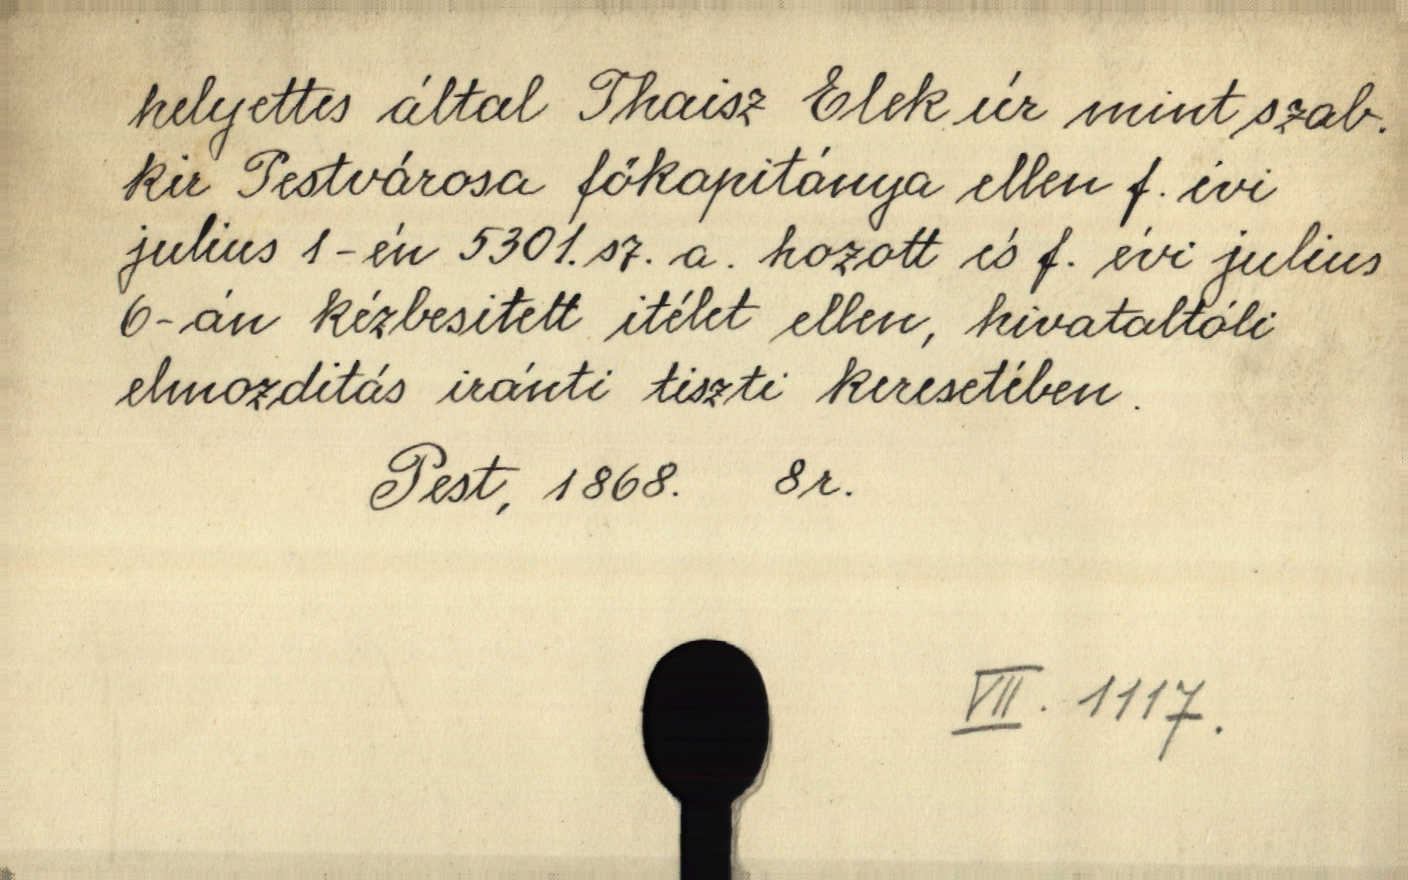 helyettes által Thaisz Elek úr mint szab.
kir Pestvárosa főkapitánya ellen f. évi
julius 1-én 5301. sz. a. hozott és f. évi julius
6-án kézbesitett itélet ellen, hivataltóli
elmozditás iránti tiszti keresetében.
Pest, 1868. 8r.
VII. 1117.